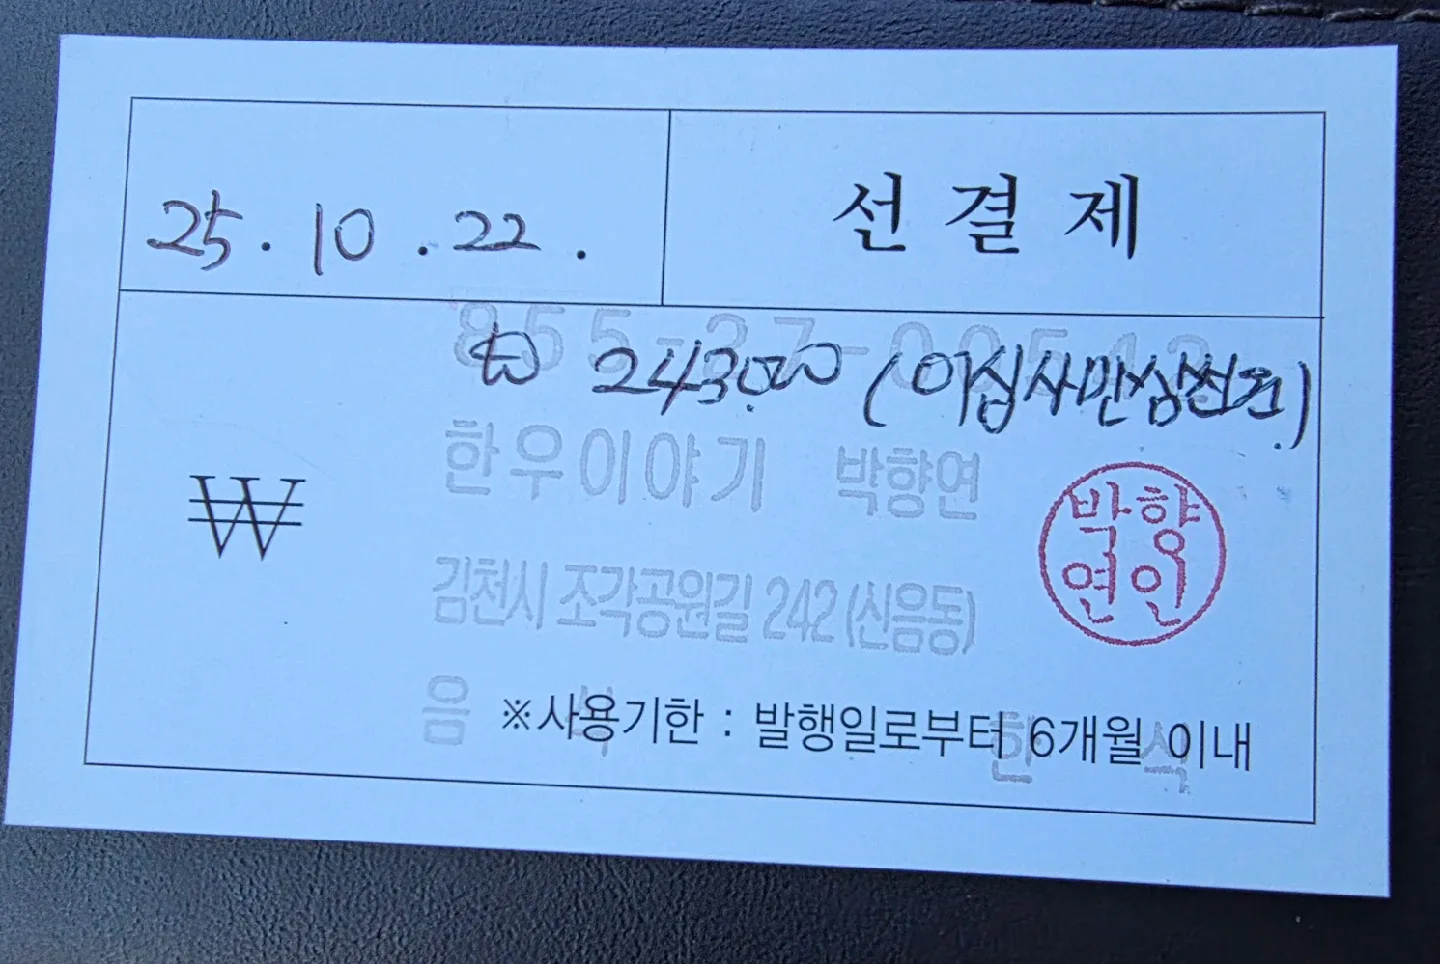 25.10.22.
선결제
855-37-00542
₩ 243000 (이십사만삼천원.)
한우이야기 박향연
₩
박향
연인
김천시 조각공원길 242 (신음동)
음식 한식
※사용기한 : 발행일로부터 6개월 이내